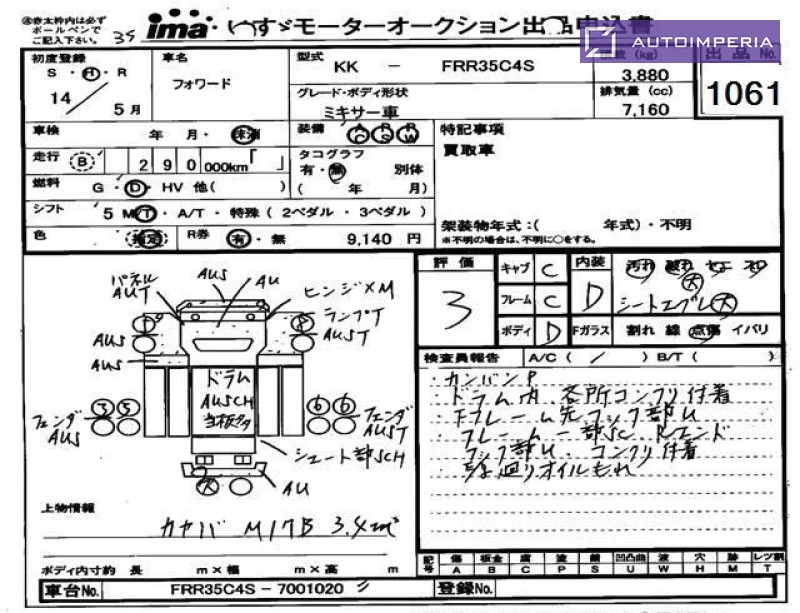 ※赤太枠内は必ず
ボールペンで
ご記入下さい。
35
ima いすゞモーターオークション出品申込書
AUTOIMPERIA
初度登録 車名 型式 KK - FRR35C4S (kg) 出品No.
S・H・R フォワード 3,880
14 / 5月 グレード・ボディ形状 排気量 (cc) 1061
ミキサー車 7,160
車検 年 月・抹消 装備 AC PS PW 特記事項
走行 B 290,000km「 」 タコグラフ 買取車
有・無 別体
燃料 G・D・HV 他( ) ( 年 月)
シフト 5 M/T・A/T・特殊(2ペダル・3ペダル) 架装物年式:( 年式)・不明
※不明の場合は、不明に○をする。
色 指定 R券 有・無 9,140 円
評価 キャブ C 内装 汚れ 破れ
3 フレーム C D シートエグレ大
ボディ D Fガラス 割れ 線 点傷 イバリ
パネル AUT
AUS
AU
ヒンジ×M
ランプT
AUST
AUS
AUS
ドラム
AUSCH
当板多
フェンダ AUS
3 5
6 6
フェンダ AUST
シュート部SCH
AU
検査員報告 A/C( / ) B/T( )
・カンバンP
・ドラム内 各所コンクリ付着
・Fフレーム先フック部U
・フレーム一部SC Rエンド
フック部U コンクリ付着
廻りオイルもれ
上物情報
カヤバ M17B 3.4m³
ボディ内寸約 長 m×幅 m×高 m
記号 傷 板金 腐 塗 錆 凹凸曲 波 穴 跡 レツ割
A B C P S U W H M T
車台No. FRR35C4S-7001020 登録No.